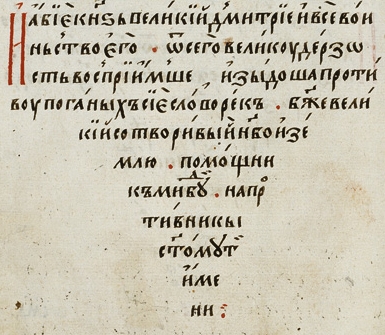 И҆абїекнѕьвеликїйдмитрїейивсевои
ньствоего . ѿсеговеликоудерзо
стьвоспрїимше изыдошапроти
воупоганыхъсїесловорекъ . бж҃евели
кїйсотворивыйнб҃оизе
млю . помощни
къмибꙋⷣ . напрⷪ
тивникы
ст҃омꙋт
име
ни :